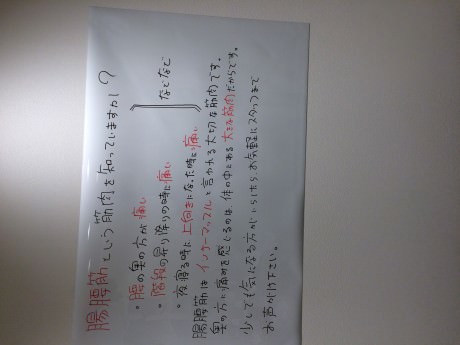 腸腰筋という筋肉を知っていますか？
・腰の奥の方が痛い
・階段の昇り降りの時に痛い
・夜寝る時に上向きになった時に痛い
などなど
腸腰筋はインナーマッスルと言われる大切な筋肉です。
奥の方に痛みを感じるのは、体の中にある大きな筋肉だからです。
少しでも気になる方がいらしたら、お気軽にスタッフまで
お声がけ下さい。